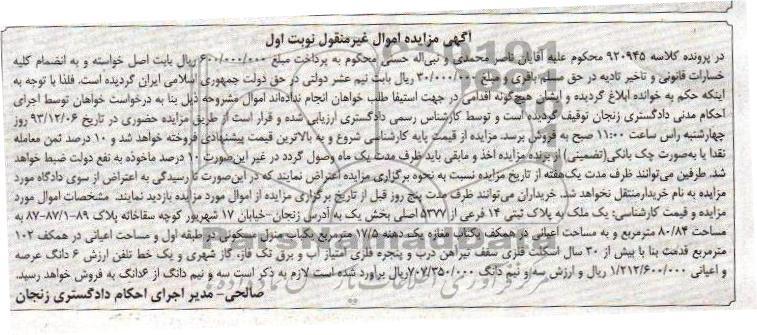 آگهی مزایده اموال غیرمنقول نوبت اول
در پرونده کلاسه ۹۲۰۹۴۵ محکوم علیه آقایان ناصر محمدی و نبی‌اله حسنی محکوم به پرداخت مبلغ ۶۰۰/۰۰۰/۰۰۰ ریال بابت اصل خواسته و به انضمام کلیه
خسارات قانونی و تاخیر تادیه در حق مسلم باقری و مبلغ ۳۰/۰۰۰/۰۰۰ ریال بابت نیم عشر دولتی در حق دولت جمهوری اسلامی ایران گردیده است. فلذا با توجه به
اینکه حکم به خوانده ابلاغ گردیده و ایشان هیچ‌گونه اقدامی در جهت استیفا طلب خواهان انجام نداده‌اند اموال مشروحه ذیل بنا به درخواست خواهان توسط اجرای
احکام مدنی دادگستری زنجان توقیف گردیده است و توسط کارشناس رسمی دادگستری ارزیابی شده و قرار است از طریق مزایده حضوری در تاریخ ۹۳/۱۲/۰۶ روز
چهارشنبه راس ساعت ۱۱:۰۰ صبح به فروش برسد. مزایده از قیمت پایه کارشناسی شروع و به بالاترین قیمت پیشنهادی فروخته خواهد شد و ۱۰ درصد ثمن معامله
نقدا یا به‌صورت چک بانکی(تضمینی) از برنده مزایده اخذ و مابقی باید ظرف مدت یک ماه وصول گردد در غیر این‌صورت ۱۰ درصد ماخوذه به نفع دولت ضبط خواهد
شد. طرفین می‌توانند ظرف مدت یک‌هفته از تاریخ مزایده نسبت به نحوه برگزاری مزایده اعتراض نمایند که در این‌صورت تا رسیدگی به اعتراض از سوی دادگاه مورد
مزایده به نام خریدارمنتقل نخواهد شد. خریداران می‌توانند ظرف مدت پنج روز قبل از تاریخ برگزاری مزایده از اموال مورد مزایده بازدید نمایند. مشخصات اموال مورد
مزایده و قیمت کارشناسی: یک ملک به پلاک ثبتی ۱۴ فرعی از ۵۳۷۷ اصلی بخش یک به آدرس زنجان-خیابان ۱۷ شهریور کوچه سقاخانه پلاک ۸۹-۸۷/۱-۸۷ به
مساحت ۸۰/۸۴ مترمربع و به مساحت اعیانی در همکف یکباب مغازه یک دهنه ۱۷/۵ مترمربع یکباب منزل مسکونی در طبقه اول و مساحت اعیانی در همکف ۱۰۲
مترمربع قدمت بنا با بیش از ۳۰ سال اسکلت فلزی سقف تیرآهن درب و پنجره فلزی امتیاز آب و برق تک فاز، گاز شهری و یک خط تلفن ارزش ۶ دانگ عرصه
و اعیانی ۱/۲۱۲/۶۰۰/۰۰۰ ریال و ارزش سه و نیم دانگ ۷۰۷/۳۵۰/۰۰۰ریال برآورد شده است لازم به ذکر است سه و نیم دانگ از ۶دانگ به فروش خواهد رسید.
صالحی- مدیر اجرای احکام دادگستری زنجان
ParsNamadData